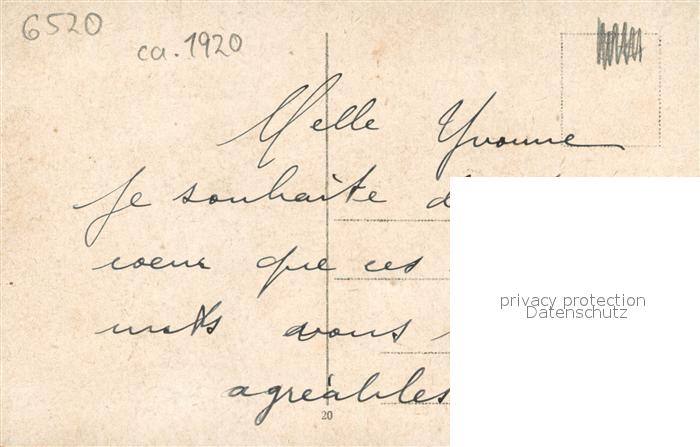 6520
ca. 1920
Melle Yvonne
Je souhaite d
coeur que ces
mots vous
agréables
privacy protection
Datenschutz
20